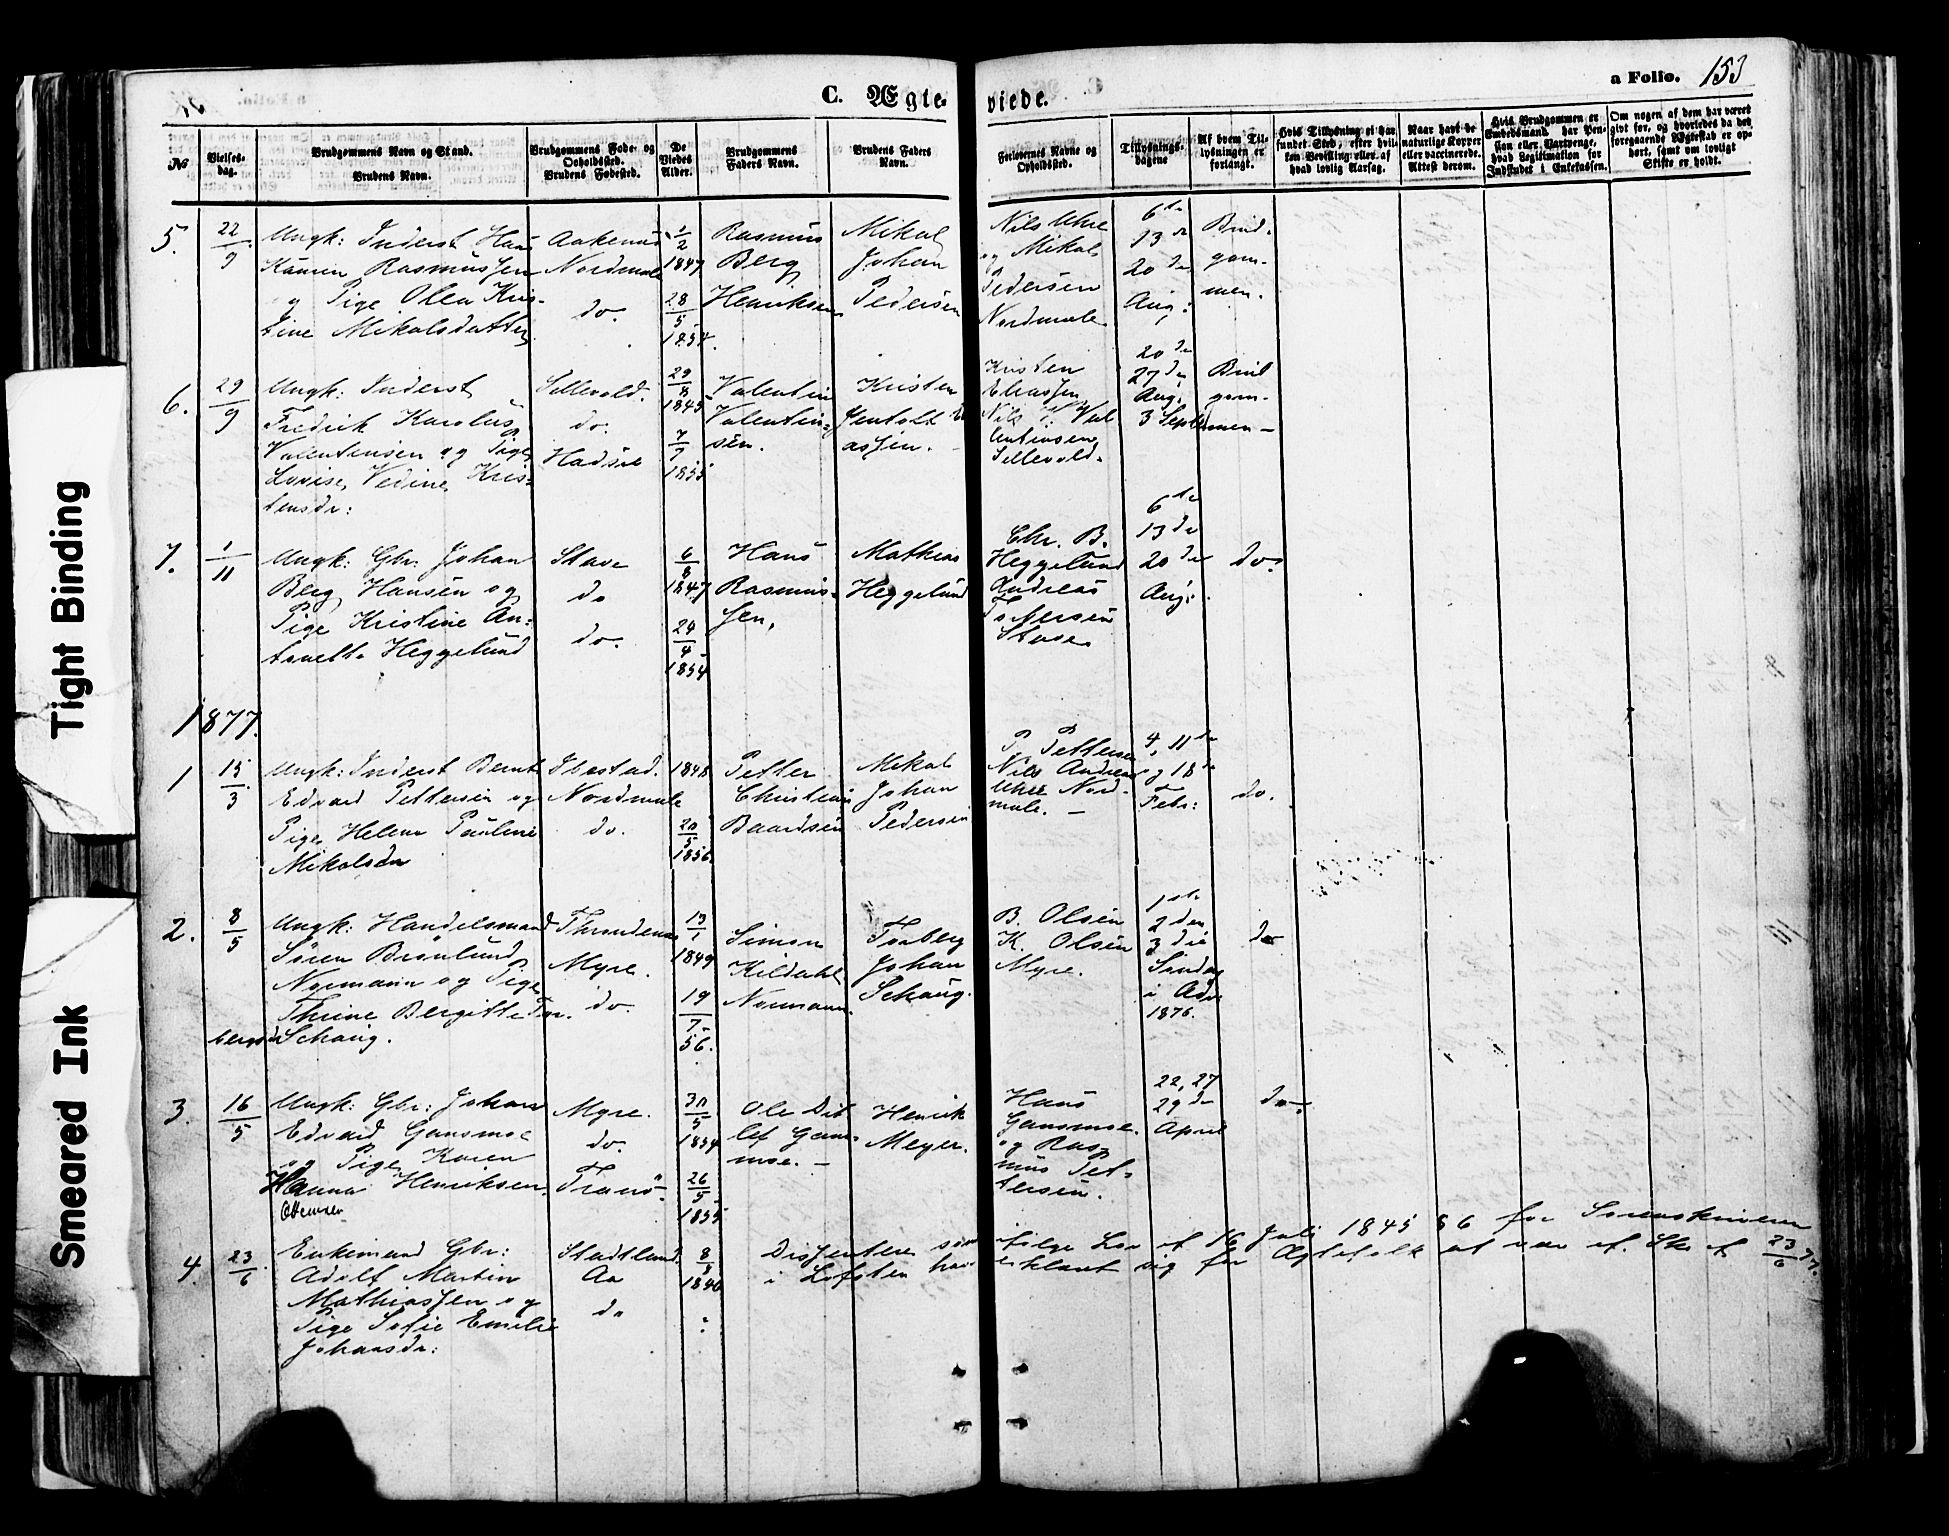 Tight Binding
Smeared Ink
C. Ægte- viede.
a Folio. 153
No
Vielses-
dag.
Brudgommens Navn og Stand.
Brudens Navn.
Brudgommens Føde- og
Opholdssted.
Brudens Fødested.
De
Viedes
Alder.
Brudgommens
Faders Navn.
Brudens Faders
Navn.
Forlovernes Navne og
Opholdssted.
Tillysnings-
dagene
Af hvem Til-
lysningen er
forlangt.
Hvis Tillysning ei har
fundet Sted, efter hvil-
ken Bevilling eller af
hvad lovlig Aarsag.
Naar havt de
naturlige Kopper
eller vaccinerede.
Attest derom.
Hvis Brudgommen er
Embedsmand, har Pen-
sion eller Vartpenge,
hvad Legitimation for
Indskudet i Enkekassen.
Om nogen af dem har været
givt før, og hvorledes da det
foregaaende Ægteskab er op-
hørt, samt om lovligt
Skifte er holdt.
5.
22/9
Ungk: Inderst Hans
Kaurin Rasmussen
og Pige Olea Kris-
tine Mikalsdatter
Nordmele
do.
1/2
1847
28/5
1854.
Rasmus
Berg
Henriksen
Mikal
Johan
Pedersen
Nils Uhre
og Mikal
Pedersen
Nordmele
6te
13de
20de
Aug:
Brud-
gom-
men.
6.
29/9
Ungk: Inderst
Fredrik Karolus
Valentinsen og Pige
Lovise Vedine Kris-
tensdr:
Sellevold.
do.
Hadsel
29/8
1845
7/7
1855
Valentin
Valentin-
sen.
Kristen
assen.
Kristen
Eliassen
Nils
lentinsen
Sellevold.
20de
27de
Aug:
3 Septb
Brud
gom-
men-
7.
1/11
Ungk: Gbr: Johan
Berg Hansen og
Pige Kristine An-
tonette Heggelund
Stave
do
do.
6/8
1847
24/4
1854
Hans
Rasmus-
sen,
Mathias
Heggelund
Chr. B.
Heggelund
Andreas
Stave
6te
13de
20de
Aug:
do.
1877.
1
15/3
Ungk: Inderst Bernt
Edvard Pettersen og
Pige Helena Pauline
Mikalsdr
Ibestad.
Nordmele
do.
1848
20/5
1856.
Petter
Christian
Baardsen
Mikal
Johan
Pedersen
P. Pettersen
Nils Andreas
Uhre Nord-
mele. -
4, 11te
og 18de
Febr:
do.
2.
8/5
Ungk: Handelsmand
Søren Brønlund
Normann og Pige
Thrine Bergitte Tor-
bergsdr Schaug.
Throndenes
Myre.
do.
13/1
1849
19/7
56.
Simon
Kildahl
Normann.
Torberg
Johan
Schaug.
B. Olsen
K. Olsen
Myre.
1ste
2den
3die
Søndag
i Adv
1876.
do
3.
16/5
Ungk: Gbr: Johan
Edvard Gansmoe
og Pige Karen
Hanna Henriksen.
Myre.
do.
Tranø
30/5
1854
26/5
1855
Ole Dit
lef Gans-
moe. -
Henrik
Meyer.
Hans
Gansmoe
og Ras
mus Pet-
tersen.
22, 27
29de
April
do.
4
23/6
Enkemand Gbr:
Adolf Martin
Mathiassen og
Pige Sofie Emelie
Johansdr:
Stadtland.
Aa
do
1840
Dissentere som ifølge Lov af 16 Juli 1845 § 6 for Sorenskriveren
i Lofoten har erklæret sig for Ægtefolk at være ef. Skr. af 23/6 77.